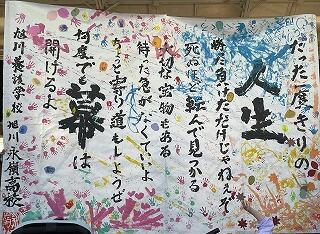 たった一度きりの
人生
勝ち負けだけじゃねえぞ
死ぬほど転んで見つかる
大切な宝物もある
急がなくていいよ
ちょっと寄り道もしようぜ
幕は
何度でも
開けるよ
旭川養護学校 旭川永嶺高校